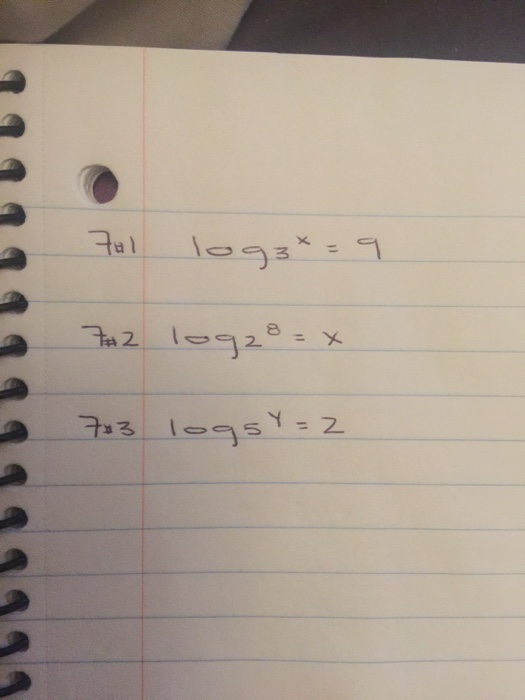 7#1 log3ˣ = 9
7#2 log2⁸ = x
7#3 log5ʸ = 2